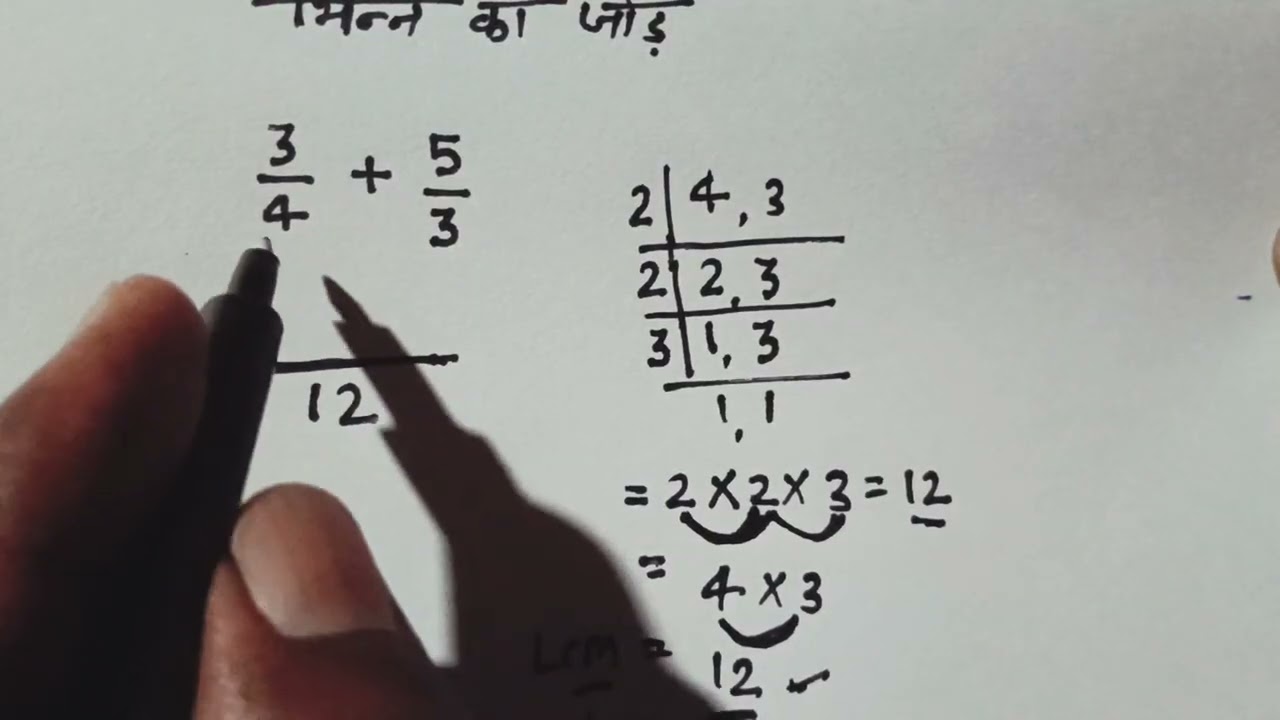 भिन्न का जोड़
3/4 + 5/3
12
2 | 4, 3
2 | 2, 3
3 | 1, 3
1, 1
= 2 × 2 × 3 = 12
= 4 × 3
Lcm = 12 ✓